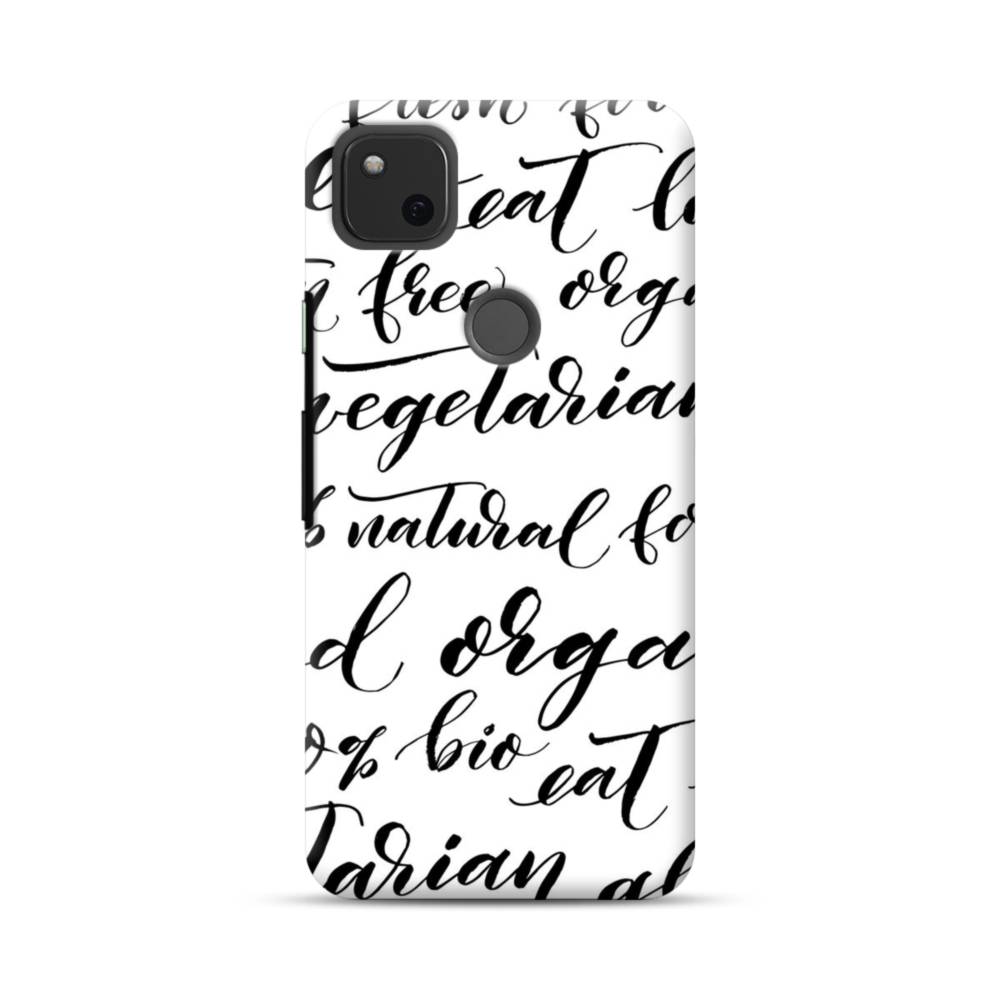 fresh
eat
free orga
vegetarian
natural fo
d organ
0% bio eat
tarian